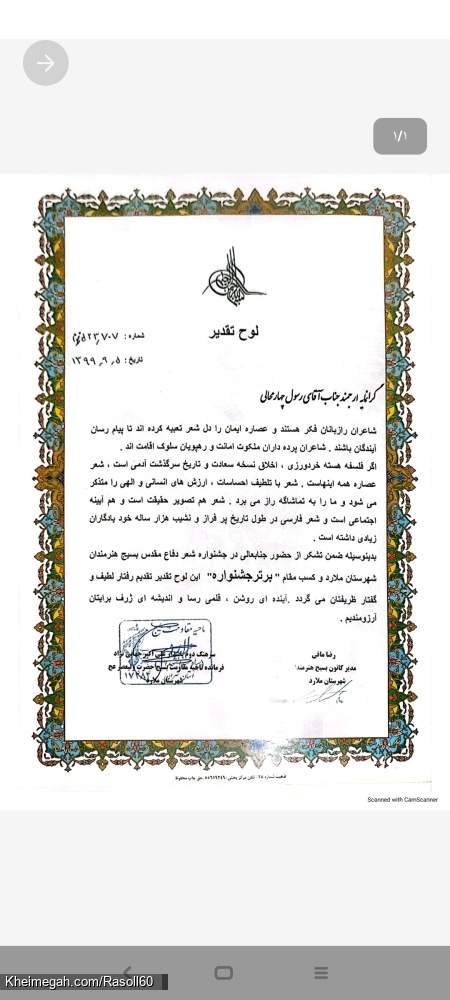 ۱/۱
لوح تقدیر
شماره :
تاریخ : ۱۳۹۹ ٫ ۶ ٫ ۵
گرانمایه ارجمند جناب آقای رسول چهارمحالی
شاعران رازبانان فکر هستند و عصاره ایمان را دل شعر تعبیه کرده اند تا پیام رسان
آیندگان باشند . شاعران پرده داران ملکوت امانت و رهپویان سلوک اقامت اند .
اگر فلسفه هسته خردورزی ، اخلاق نسخه سعادت و تاریخ سرگذشت آدمی است ، شعر
عصاره همه اینهاست . شعر با تلطیف احساسات ، ارزش های انسانی و الهی را متذکر
می شود و ما را به تماشاگه راز می برد . شعر هم تصویر حقیقت است و هم آیینه
اجتماعی است و شعر فارسی در طول تاریخ پر فراز و نشیب هزار ساله خود یادگاران
زیادی داشته است .
بدینوسیله ضمن تشکر از حضور جنابعالی در جشنواره شعر دفاع مقدس بسیج هنرمندان
شهرستان ملارد و کسب مقام " برترجشنواره" این لوح تقدیر تقدیم رفتار لطیف و
گفتار ظریفتان می گردد .آینده ای روشن ، قلمی رسا و اندیشه ای ژرف برایتان
آرزومندیم .
رضا مافی
مدیر کانون بسیج هنرمندان
شهرستان ملارد
سرهنگ دوم پاسدار علی اکبر
فرمانده ناحیه مقاومت بسیج حضرت ولیعصر عج
شهرستان ملارد
Scanned with CamScanner
Kheimegah.com/Rasoll60